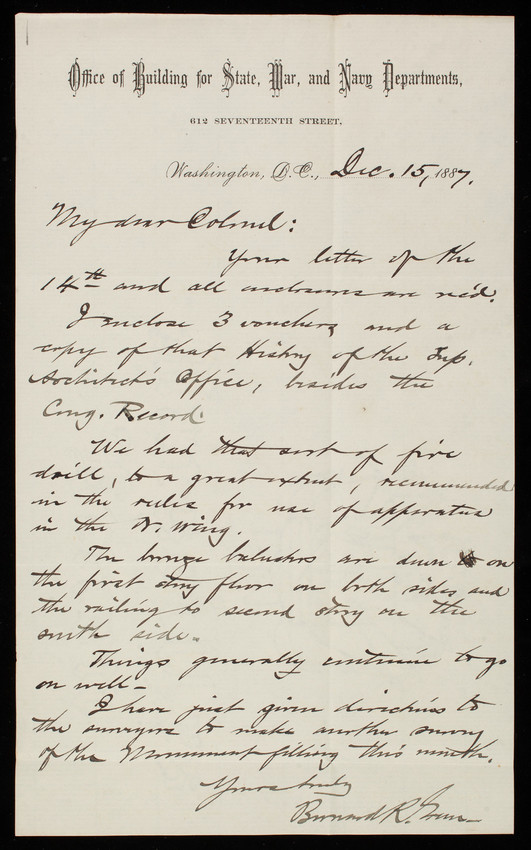 Office of Building for State, War, and Navy Departments,
612 SEVENTEENTH STREET.
Washington, D.C., Dec. 15, 1887.
My dear Colonel:
Your letter of the
14th and all enclosures are rec'd.
I enclose 3 vouchers, and a
copy of that History of the Sup.
Architect's Office, besides the
Cong. Record.
We had that sort of fire
drill, to a great extent, recommended
in the rules for use of apparatus
in the N. Wing.
The bronze balusters are down on
the first story floor on both sides and
the railing to second story on the
south side.
Things generally continue to go
on well-
I have just given directions to
the surveyors to make another survey
of the Monument filling this month.
Yours truly
Bernard R. Green